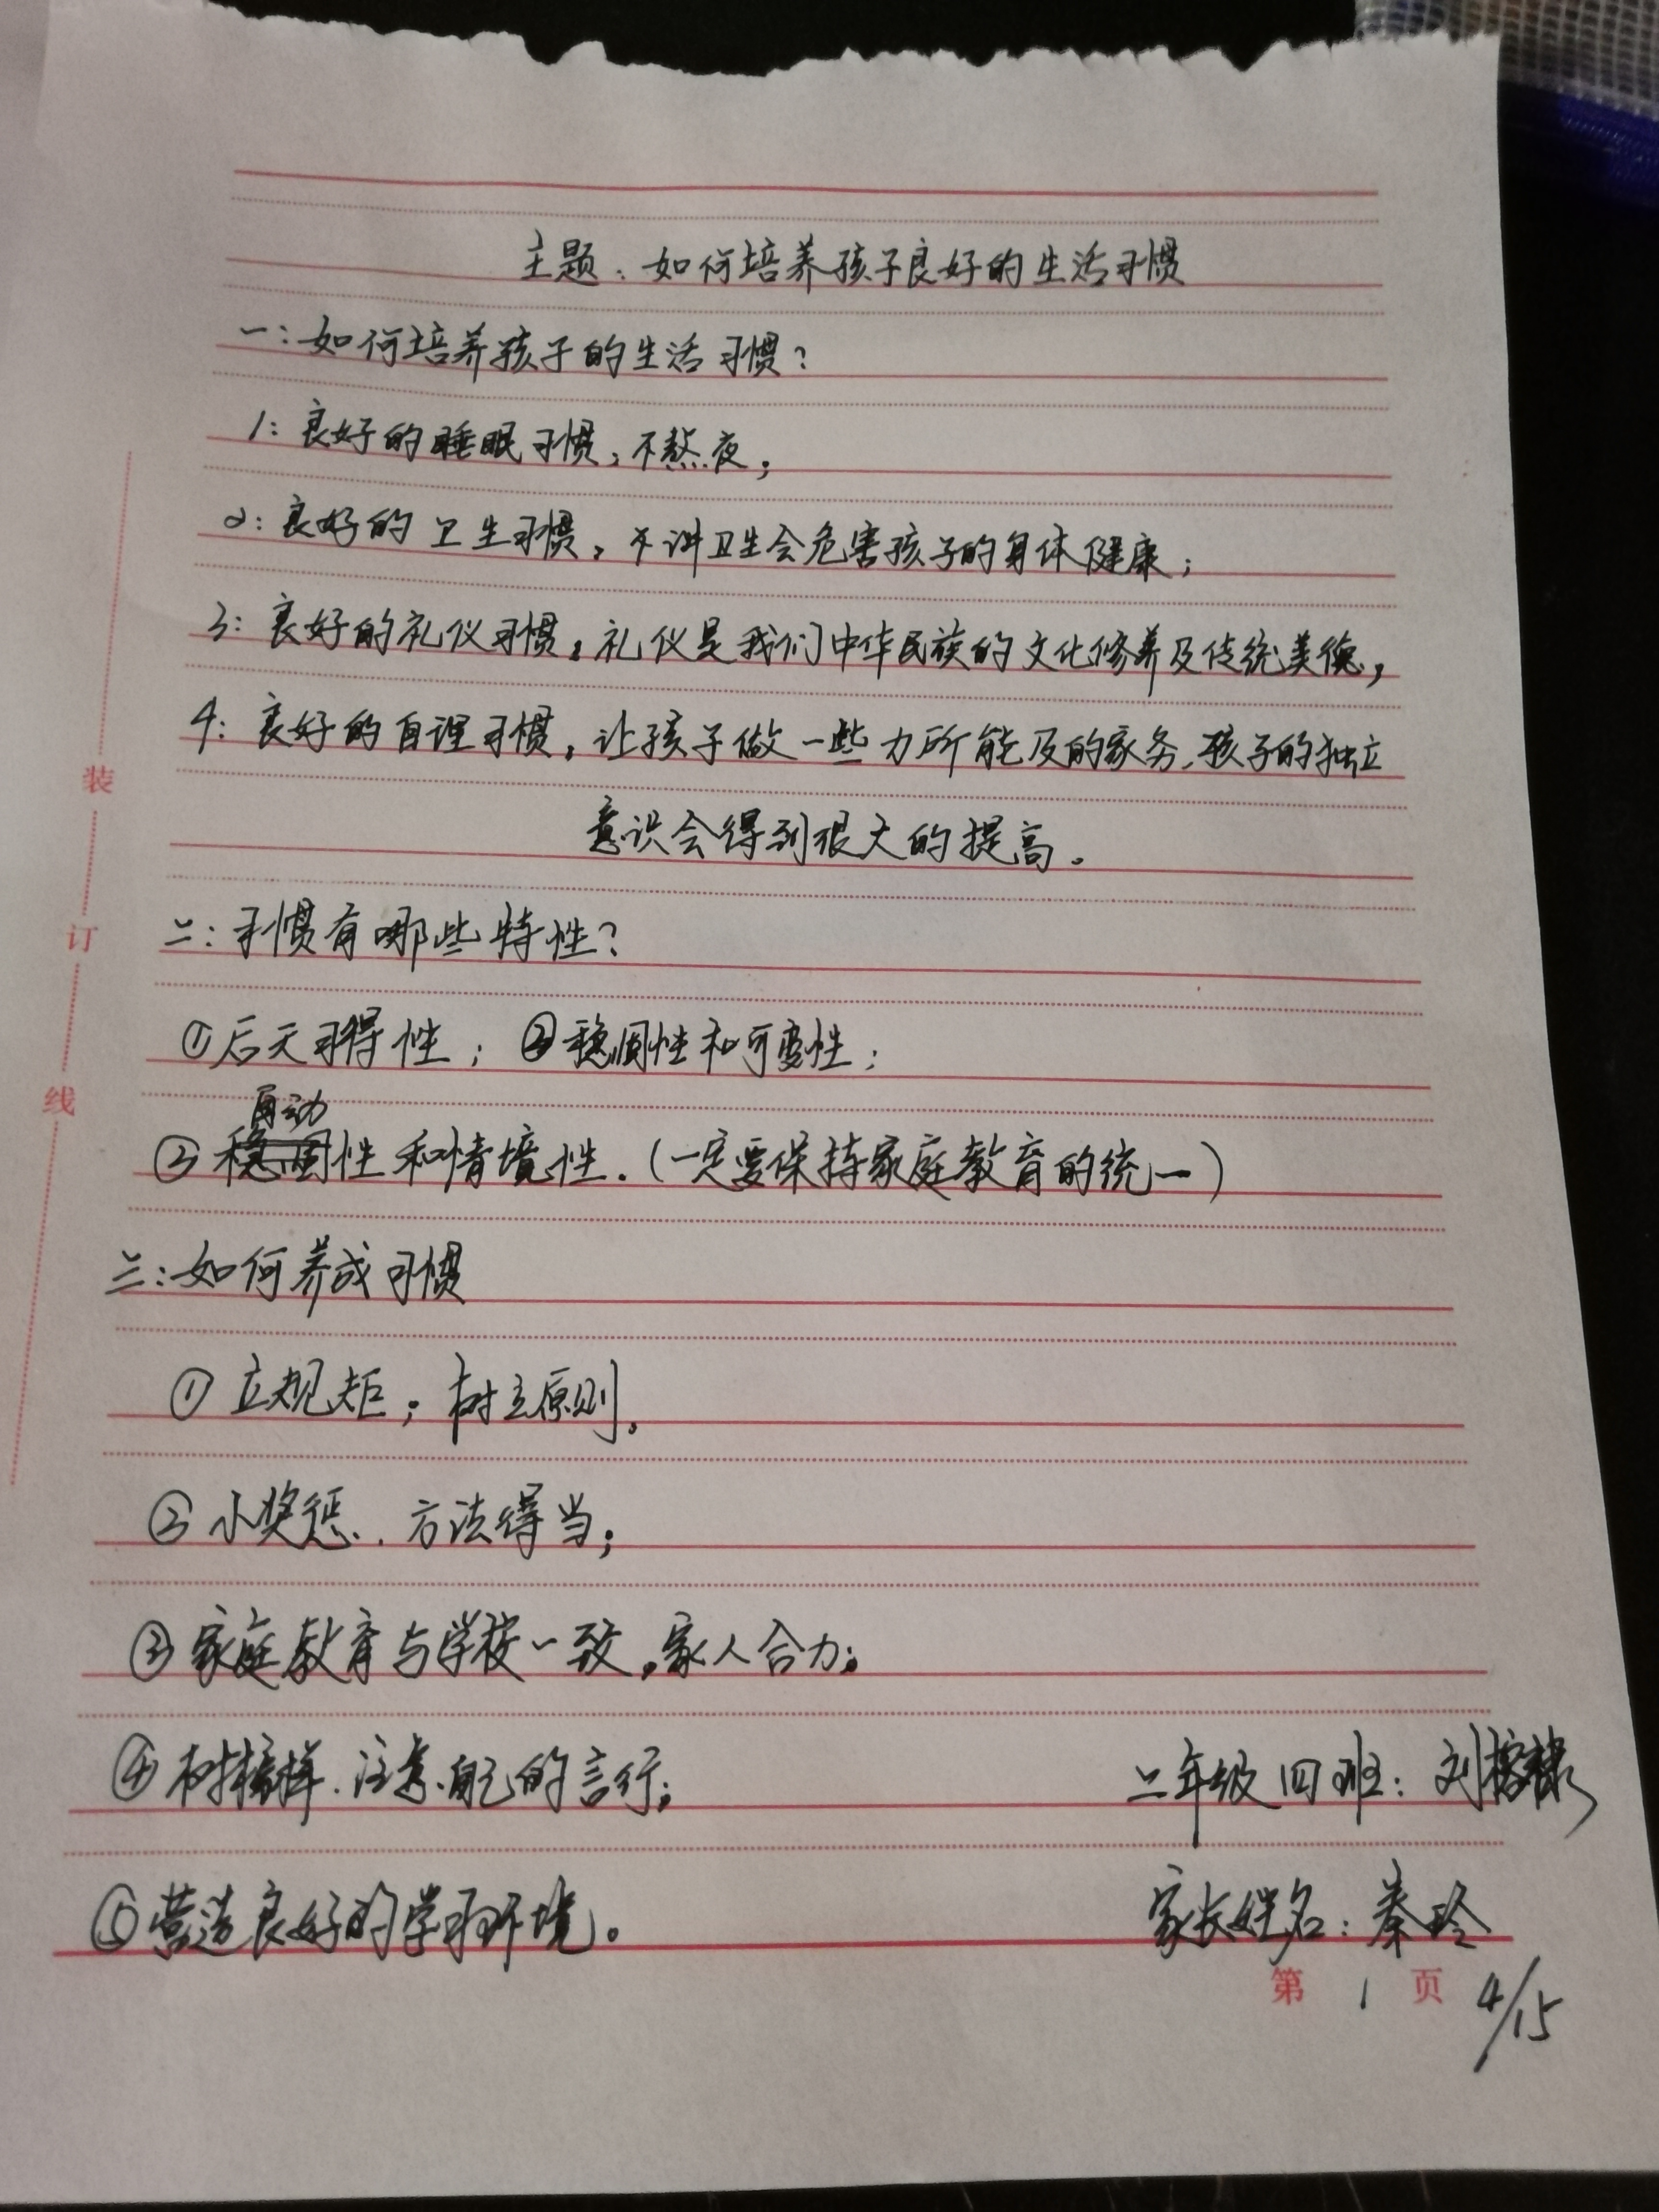 主题：如何培养孩子良好的生活习惯
一：如何培养孩子的生活习惯？
1：良好的睡眠习惯，不熬夜，
2：良好的卫生习惯，不讲卫生会危害孩子的身体健康；
3：良好的礼仪习惯，礼仪是我们中华民族的文化修养及传统美德，
4：良好的自理习惯，让孩子做一些力所能及的家务，孩子的独立
意识会得到很大的提高。
二：习惯有哪些特性？
①后天习得性；②稳固性和可变性；
自动
③稳固性和情境性.（一定要保持家庭教育的统一）
三：如何养成习惯
①立规矩；树立原则。
②小奖惩．方法得当；
③家庭教育与学校一致，家人合力；
④树榜样．注意自己的言行；
二年级四班：刘
⑤营造良好的学习环境。
家长姓名：秦玲
第 1 页
4/15
装
订
线